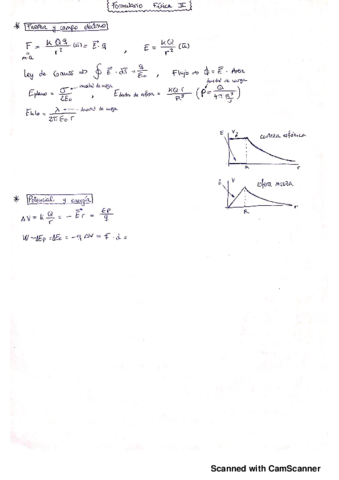 Formulario Física II
* Fuerza y campo eléctrico
F = k Q q / r² (û) = E · q , E = k Q / r² (û)
m·a
Ley de Gauss ⇒ ∮ E · ds = q / ε₀ , Flujo ⇒ ϕ = E · Area
E plano = σ / 2ε₀ , E dentro de esfera = k Q r / R³ (ρ = Q / 4/3 π R³)
E hilo = λ / 2π ε₀ r
E V
R r
corteza esférica
E V
esfera maciza
R r
* Potencial y energía
ΔV = k Q / r = - E r = Ep / q
W = -ΔEp = ΔEc = -q ΔV = F · d =
Scanned with CamScanner